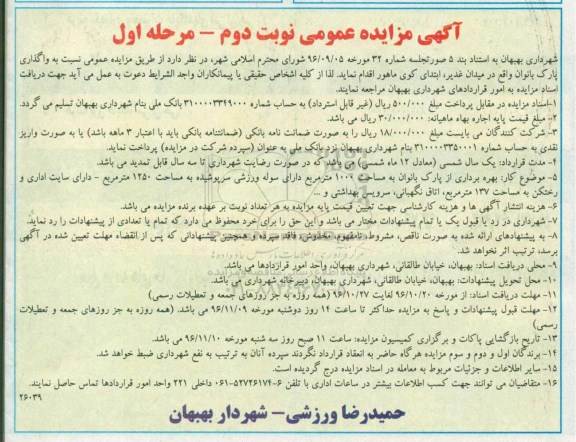 آگهی مزایده عمومی نوبت دوم – مرحله اول
شهرداری بهبهان به استناد بند ۵ صورتجلسه شماره ۳۲ مورخه ۹۶/۰۹/۰۵ شورای محترم اسلامی شهر، در نظر دارد از طریق مزایده عمومی نسبت به واگذاری
پارک بانوان واقع در میدان غدیر، ابتدای کوی ماهور اقدام نماید. لذا از کلیه اشخاص حقیقی یا پیمانکاران واجد الشرایط دعوت به عمل می آید جهت دریافت
اسناد مزایده به امور قراردادهای شهرداری بهبهان مراجعه نمایند.
۱-اسناد مزایده در مقابل پرداخت مبلغ ۵۰۰/۰۰۰ ریال (غیر قابل استرداد) به حساب شماره ۳۱۰۰۰۰۳۳۴۹۰۰۰ بانک ملی بنام شهرداری بهبهان تسلیم می گردد.
۲- مبلغ قیمت پایه اجاره بهاء ماهیانه: ۳۰/۰۰۰/۰۰۰ ریال می باشد.
۳- شرکت کنندگان می بایست مبلغ ۱۸/۰۰۰/۰۰۰ ریال را به صورت ضمانت نامه بانکی (ضمانتنامه بانکی باید با اعتبار ۳ ماهه باشد) یا به صورت واریز
نقدی به حساب شماره ۳۱۰۰۰۰۳۳۵۰۰۰۱ بنام شهرداری بهبهان نزد بانک ملی به عنوان (سپرده شرکت در مزایده) پرداخت نماید.
۴- مدت قرارداد: یک سال شمسی (معادل ۱۲ ماه شمسی) می باشد که در صورت رضایت شهرداری تا سه سال قابل تمدید می باشد.
۵- موضوع کار: بهره برداری از پارک بانوان به مساحت ۱۰۰۹ مترمربع دارای سوله ورزشی سرپوشیده به مساحت ۱۲۵۰ مترمربع - دارای سایت اداری و
رختکن به مساحت ۱۳۷ مترمربع، اتاق نگهبانی، سرویس بهداشتی و ...
۶- هزینه انتشار آگهی ها و هزینه کارشناسی جهت تعیین قیمت پایه مزایده به هر تعداد نوبت بر عهده برنده مزایده می باشد.
۷- شهرداری در رد یا قبول یک یا تمام پیشنهادات مختار می باشد و این حق را برای خود محفوظ می دارد که تمام یا تعدادی از پیشنهادات را رد نماید.
۸- به پیشنهادهای ارائه شده به صورت ناقص، مشروط، نامفهوم، مخدوش، فاقد سپرده و همچنین پیشنهاداتی که پس از انقضاء مهلت تعیین شده در آگهی
برسد، ترتیب اثر نخواهد شد.
۹- محل دریافت اسناد: بهبهان، خیابان طالقانی، شهرداری بهبهان، واحد امور قراردادها می باشد.
۱۰- محل تحویل پیشنهادات: بهبهان، خیابان طالقانی، شهرداری بهبهان، دبیرخانه شهرداری می باشد.
۱۱- مهلت دریافت اسناد: از مورخه ۹۶/۱۰/۲۰ لغایت ۹۶/۱۰/۲۷ (همه روزه به جز روزهای جمعه و تعطیلات رسمی)
۱۲- مهلت قبول پیشنهادات و پاسخ به مزایده حداکثر تا ساعت ۱۴ روز دوشنبه مورخه ۹۶/۱۱/۰۹ می باشد. (همه روزه به جز روزهای جمعه و تعطیلات
رسمی)
۱۳- تاریخ بازگشایی پاکات و برگزاری کمیسیون مزایده: ساعت ۱۱ صبح روز سه شنبه مورخه ۹۶/۱۱/۱۰ می باشد.
۱۴- برندگان اول و دوم و سوم مزایده هرگاه حاضر به انعقاد قرارداد نگردند سپرده آنان به ترتیب به نفع شهرداری ضبط خواهد شد.
۱۵- سایر اطلاعات و جزئیات مربوط به معامله در اسناد مزایده درج گردیده است.
۱۶- متقاضیان می توانند جهت کسب اطلاعات بیشتر در ساعات اداری با تلفن ۶-۵۲۷۲۶۱۷۴-۰۶۱ داخلی ۲۲۱ واحد امور قراردادها تماس حاصل نمایند.
۲۶۰۳۹
حمیدرضا ورزشی- شهردار بهبهان